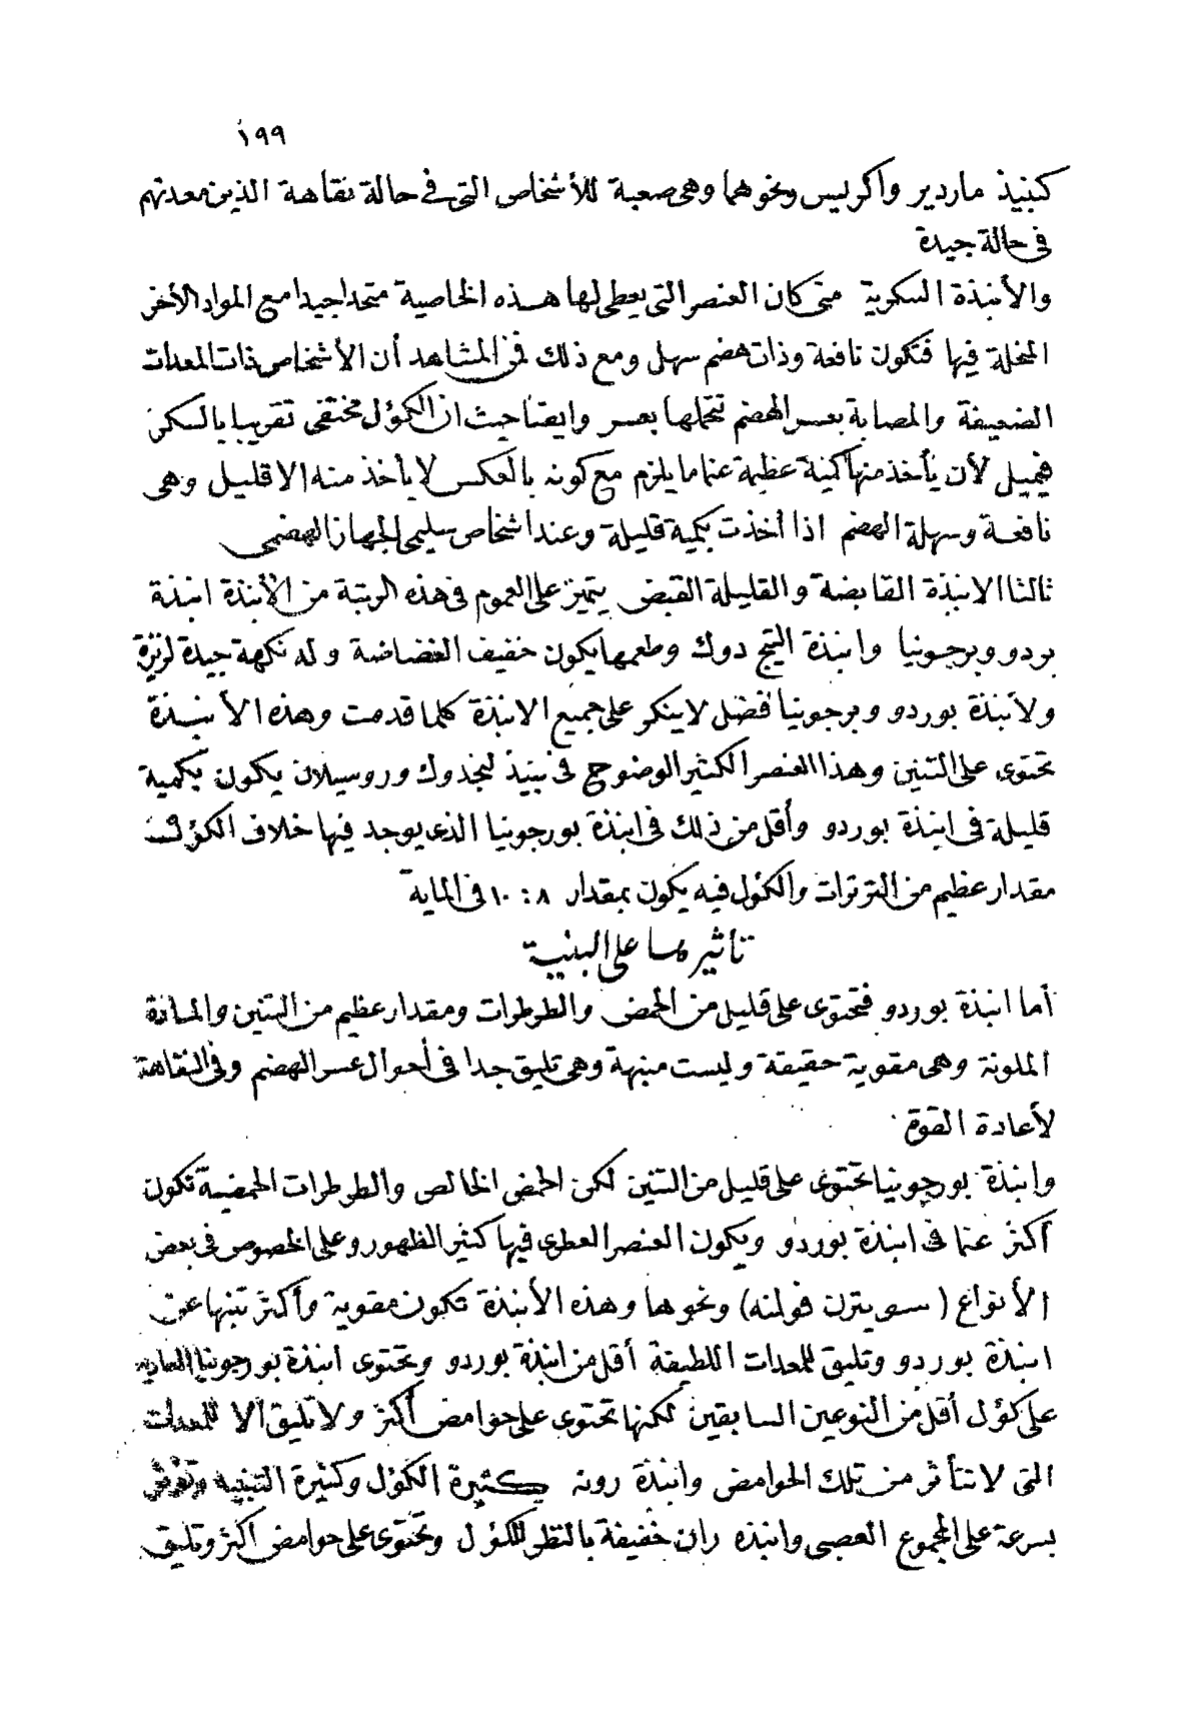 ١٩٩
كنبيذ ماردير واكربس ونحوهما وهى صعبة للأشخاص التى فى حالة نقاهة الذين معدتهم
فى حالة جيدة
والأنبذة السكرية متى كان العنصر التى يعطى لها هذه الخاصية متحدا جيدا مع المواد الأخر
المنحلة فيها فتكون نافعة وذات هضم سهل ومع ذلك فمن المشاهد أن الأشخاص ذات المعدات
الضعيفة والمصابة بعسر الهضم تتحملها بعسر وايضا حيث ان الكؤل مختفى تقريبا بالسكر
فيميل لأن يأخذ منها كمية عظيمة عما يلزم مع كونه بالعكس لا يأخذ منه الا قليل وهى
نافعة وسهلة الهضم اذا أخذت بكمية قليلة وعند اشخاص سليمى الجهاز الهضمى
ثالثا الانبذة القابضة والقليلة القبض يتميز على العموم فى هذه الرتبة من الأنبذة انبذة
بردو وبرجونيا وانبذة اليتج دوك وطعمها يكون خفيف الغضاضة وله نكهة جيدة لزيزة
ولأنبذة بوردو وبرجونيا فضل لا ينكر على جميع الانبذة كلما قدمت وهذه الأنبذة
تحتوى على التنين وهذا العنصر الكثير الوضوح فى نبيذ لنجدوك وروسيلان يكون بكمية
قليلة فى انبذة بوردو وأقل من ذلك فى انبذة بورجونيا الذى يوجد فيها خلاف الكؤل
مقدار عظيم من الترترات والكؤل فيه يكون بمقدار ٨ : ١٠ فى الماية
تأثيرها على البنية
أما انبذة بوردو فتحتوى على قليل من الحمض والطرطرات ومقدار عظيم من التنين والمادة
الملونة وهى مقوية حقيقة وليست منبهة وهى تليق جدا فى أحوال عسر الهضم وفى النقاهة
لأعادة القوة
وانبذة بورجونيا تحتوى على قليل من التنين لكن الحمض الخالص والطرطرات الحمضية تكون
أكثر عما فى انبذة بوردو ويكون العنصر العطرى فيها كثير الظهور وعلى الخصوص فى بعض
الأنواع (سويترن فولنه) ونحوها وهذه الأنبذة تكون مقوية وأكثر تنبها عن
انبذة بوردو وتليق للمعدات اللطيفة أقل من انبذة بوردو وتحتوى انبذة بورجونيا العادية
على كؤل أقل من النوعين السابقين لكنها تحتوى على حوامض أكثر ولا تليق الا للمعدات
التى لا تتأثر من تلك الحوامض وانبذة رونه كثيرة الكؤل وكثيرة التنبيه وتؤثر
بسرعة على المجموع العصبى وانبذه ران خفيفة بالنظر للكؤل وتحتوى على حوامض أكثر وتليق